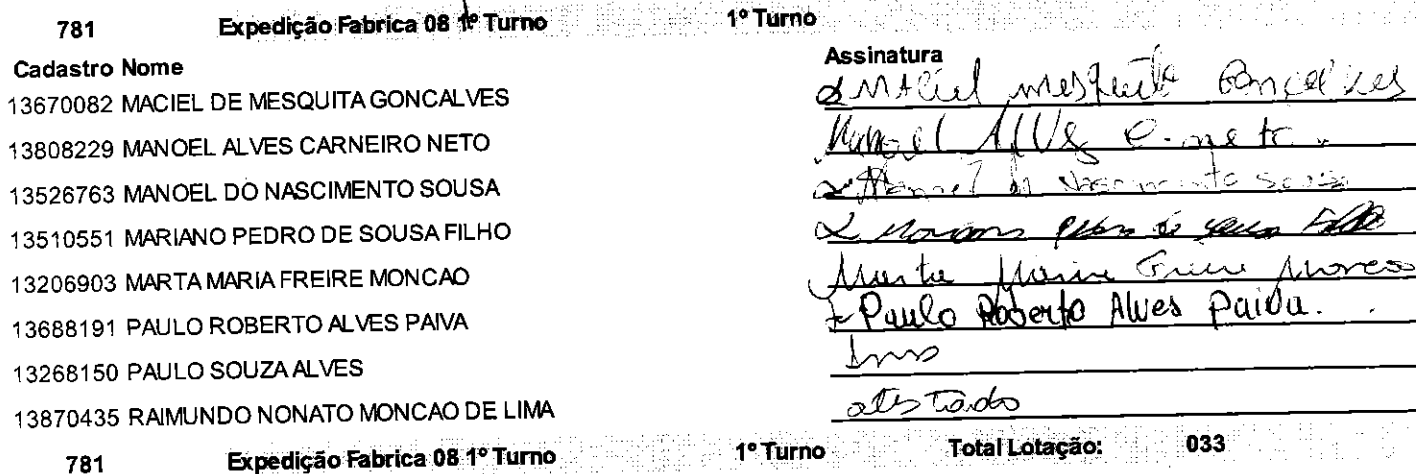 781 Expedição Fabrica 08 1º Turno 1º Turno
Cadastro Nome Assinatura
13670082 MACIEL DE MESQUITA GONCALVES Maciel mesquita Goncalves
13808229 MANOEL ALVES CARNEIRO NETO Manoel Alves C. neto.
13526763 MANOEL DO NASCIMENTO SOUSA Manoel do Nascimento Sousa
13510551 MARIANO PEDRO DE SOUSA FILHO Mariano Pedro de Sousa Filho
13206903 MARTA MARIA FREIRE MONCAO Marta Maria Freire
13688191 PAULO ROBERTO ALVES PAIVA Paulo Roberto Alves Paiva.
13268150 PAULO SOUZA ALVES
13870435 RAIMUNDO NONATO MONCAO DE LIMA atestado
781 Expedição Fabrica 08 1º Turno 1º Turno Total Lotação: 033